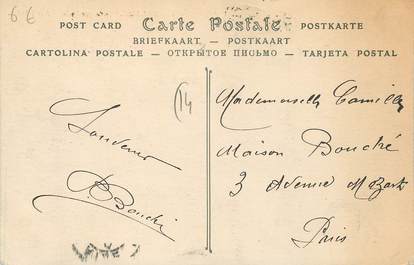 6 €
POST CARD Carte Postale POSTKARTE
BRIEFKAART — POSTKAART
CARTOLINA POSTALE — ОТКРЫТОЕ ПИСЬМО — TARJETA POSTAL
14
Mademoiselle Camille
Maison Bouché
3 Avenue Mozart
Paris
Bouché